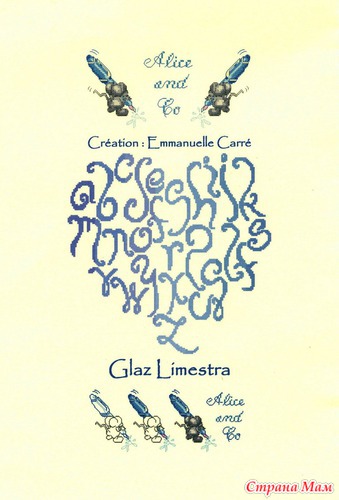 Alice
and
Co
Création : Emmanuelle Carré
Glaz Limestra
Alice
and
Co
Страна Мам